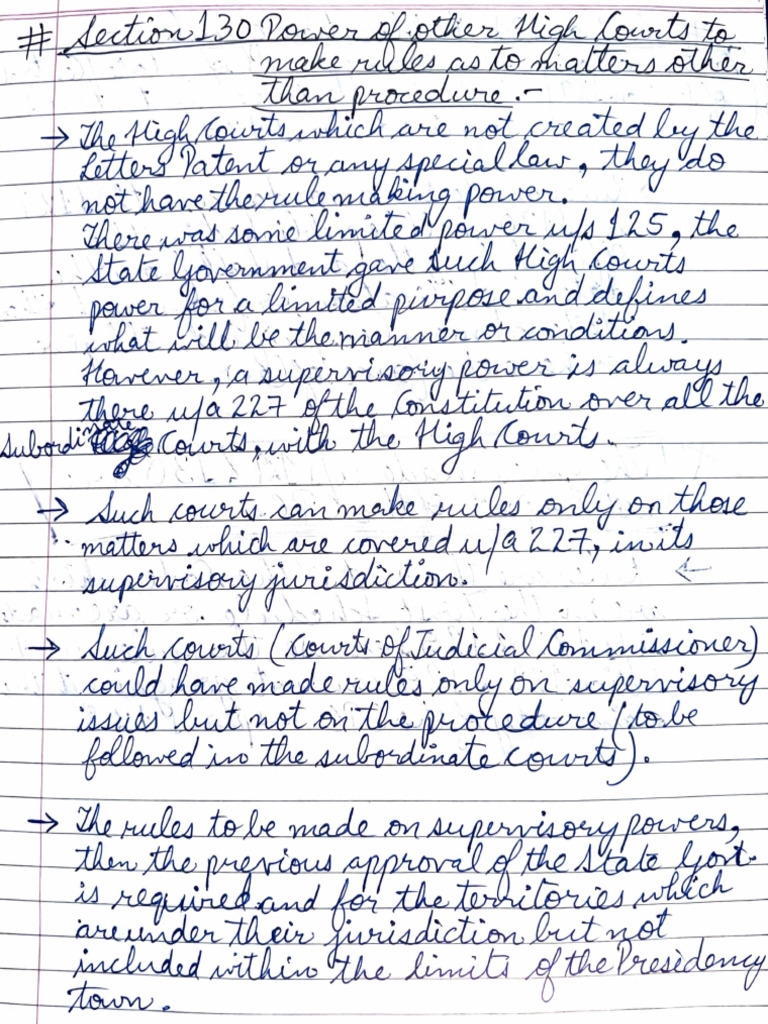 # Section 130 Power of other High Courts to
make rules as to matters other
than procedure.-
→ The High Courts which are not created by the
Letters Patent or any special law, they do
not have the rule making power.
There was some limited power u/s 125, the
State Government gave such High Courts
power for a limited purpose and defines
what will be the manner or conditions.
However, a supervisory power is always
there u/a 227 of the Constitution over all the
Subordinate Courts, with the High Courts.
→ Such courts can make rules only on those
matters which are covered u/a 227, in its
supervisory jurisdiction.
→ Such courts (Courts of Judicial Commissioner)
could have made rules only on supervisory
issues but not on the procedure (to be
followed in the subordinate courts).
→ The rules to be made on supervisory powers,
then the previous approval of the State Govt.
is required and for the territories which
are under their jurisdiction but not
included within the limits of the Presidency
town.